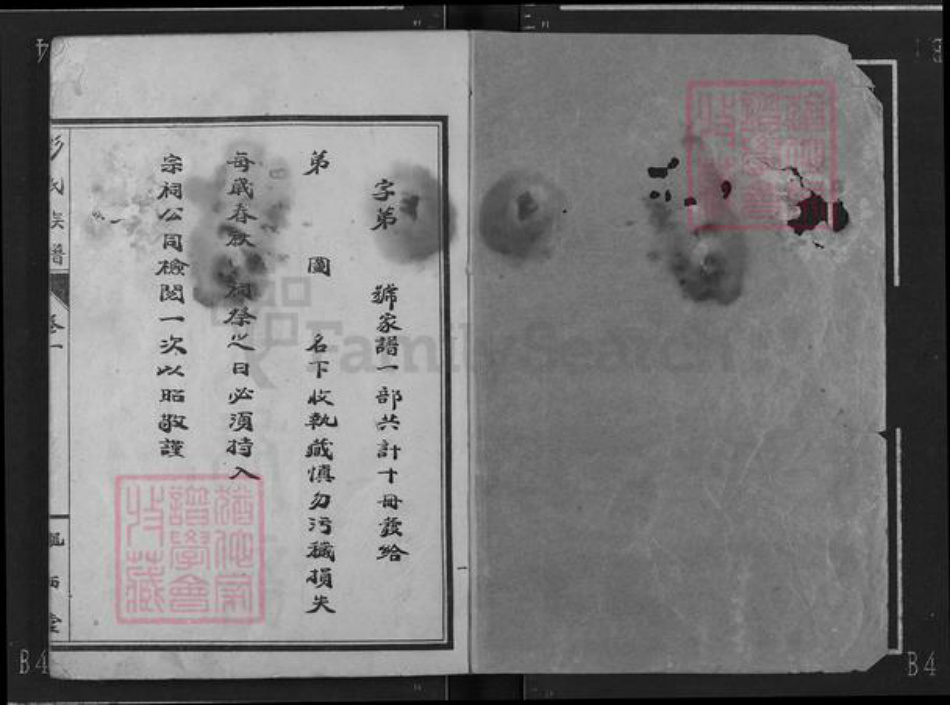 字第 號家譜一部共計十冊發給
第 圖 名下收執藏慎勿污穢損失
每歲春秋 祠祭之日必須持入
宗祠公同檢閱一次以昭敬謹
氏族譜
卷一
猶他家譜學會收藏
FamilySearch
B4
B4